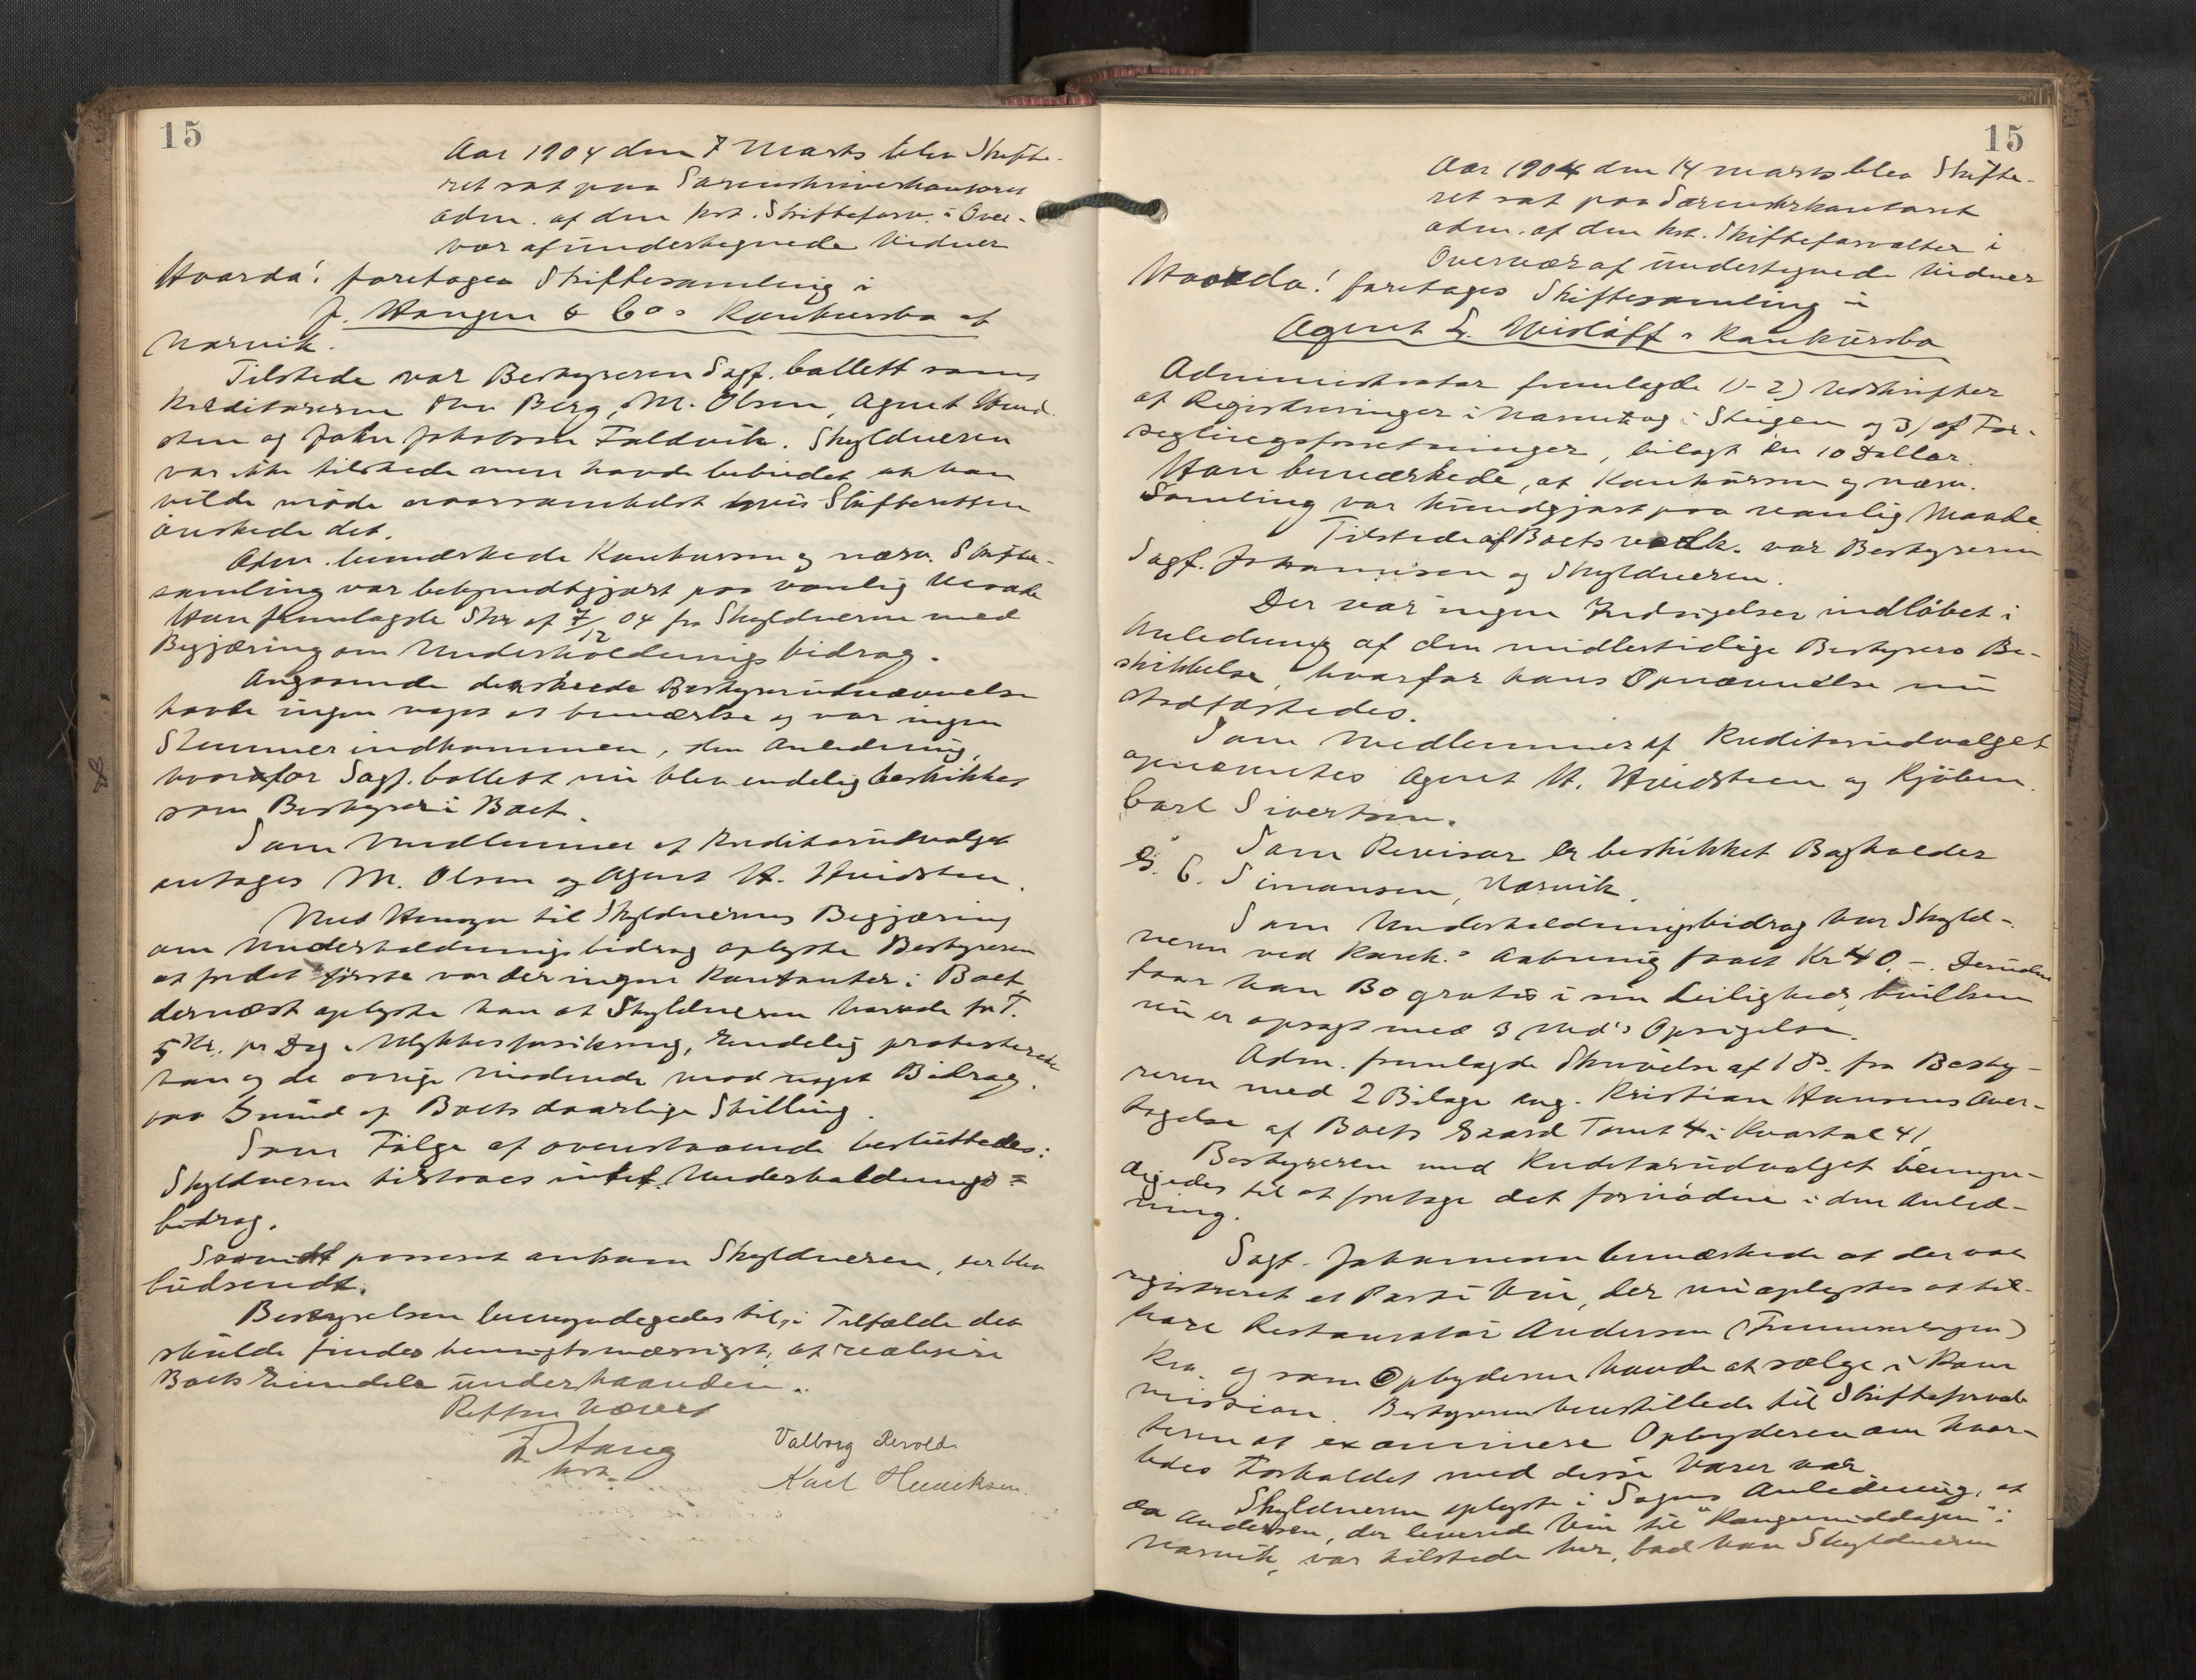 15
Aar 1904 den 7 Marts blev Skifte-
ret sat paa Sorenskriverkontoret
adm. af den kst. Skifteforv. i Over-
vær af undertegnede Vidner
Hvorda! foretoges Skiftesamling i
J. Haugen & Co's Konkursbo af
Narvik.
Tilstede var Bestyreren Sagf. Collett samt
Kreditorerne Berg, M. Olsen, Agent Hvid-
sten og John Jakobsen Foldvik. Skyldneren
var ikke tilstede men havde bebudet at han
vilde møde naarsomhelst hvis Skifteretten
ønskede det.
Adm. bemærkede Konkursen og nærv. Skifte-
samling var bekjendtgjort paa vanlig Maade
Han fremlagde Skr af 7/12 04 fra Skyldneren med
Begjæring om Underholdningsbidrag.
Angaaende den skeede Bestyrerudnævnelse
havde ingen noget at bemærke og var ingen
Stemmer indkommen, i den Anledning,
hvorfor Sagf. Collett nu blev endelig beskikket
som Bestyrer i Boet.
Som Medlemmer af Kreditorudvalget
antages M. Olsen og Agent H. Hvidsten.
Med Hensyn til Skyldnernes Begjæring
om Underholdningsbidrag oplyste Bestyreren
at for det første var der ingen Kontanter i Boet
dernæst oplyste han at Skyldneren havde for T.
5 Kr. pr Dag i Ulykkesforsikring, Endelig protesterede
han og de øvrige mødende mod noget Bidrag
paa Grund af Boets daarlige Stilling.
Som Følge af ovenstaaende besluttedes:
Skyldneren tilstaaes intet Underholdnings=
bidrag.
passeret ankom Skyldneren, der blev
budsendt.
Bestyrelsen bemyndigedes til, i Tilfælde det
skulde findes hensigtsmæssigst, at realisere
Boets Eiendele underhaanden.
Retten hævet
Stang
kst.
Valborg Rervold.
Karl Henriksen.
15
Aar 1904 den 14 Marts blev Skifte-
ret sat paa Sorenskrkontoret
adm. af den kst. Skifteforvalter i
Overvær af undertegnede Vidner
Hvorda! foretages Skiftesamling i
Agent L. Wisløff's Konkursbo
Administrator fremlagde 1-2) Udskrifter
af Registreringer i Narvik og i Steigen og 3) af For-
seglingsforretninger, bilagt en 10 Dollar.
Han bemærkede, at Konkursen og nærv.
Samling var kundgjort paa vanlig Maade
Tilstede af Boets vedk. var Bestyreren
Sagf. Johannesen og Skyldneren.
Der var ingen Indsigelser indløbet i
Anledning af den midlertidige Bestyrers Be-
skikkelse, hvorfor hans Opnævnelse nu
stadfæstedes.
Som Medlemmer af Kreditorudvalget
opnævntes Agent H. Hvidsteen og Kjøbm.
Carl Sivertsen.
Som Revisor er beskikket Bogholder
C. Simonsen, Narvik.
Som Underholdningsbidrag har Skyld-
neren ved Konk.'s Aabning faaet Kr 40.-. Desuden
faar han Bo gratis i sin Leilighed, hvilken
nu er opsagt med 3 Md's Opsigelse.
Adm. fremlagde Skrivelse af 18. fra Besty-
reren med 2 Bilage ang. Kristian Hansens Over-
tagelse af Boets Gaard Tomt 4 i Kvartal 41.
Bestyreren med Kreditorudvalget bemyn-
digedes til at foretage det fornødne i den Anled-
ning.
Sagf. Johannesen bemærkede at der var
registreret et Parti Vin, der nu oplystes at til-
høre Restauratør Andersen
Kra. og som Opbyderen havde at sælge i Kom
mission. Bestyreren henstillede til Skifteforval
teren at examinere Opbyderen om hvor-
ledes Forholdet med disse Varer var
Skyldneren oplyste i Sagens Anledning, at
da Andersen, der leverede Vin til "Kongemiddagen" i
Narvik, var tilstede her, bad han Skyldneren